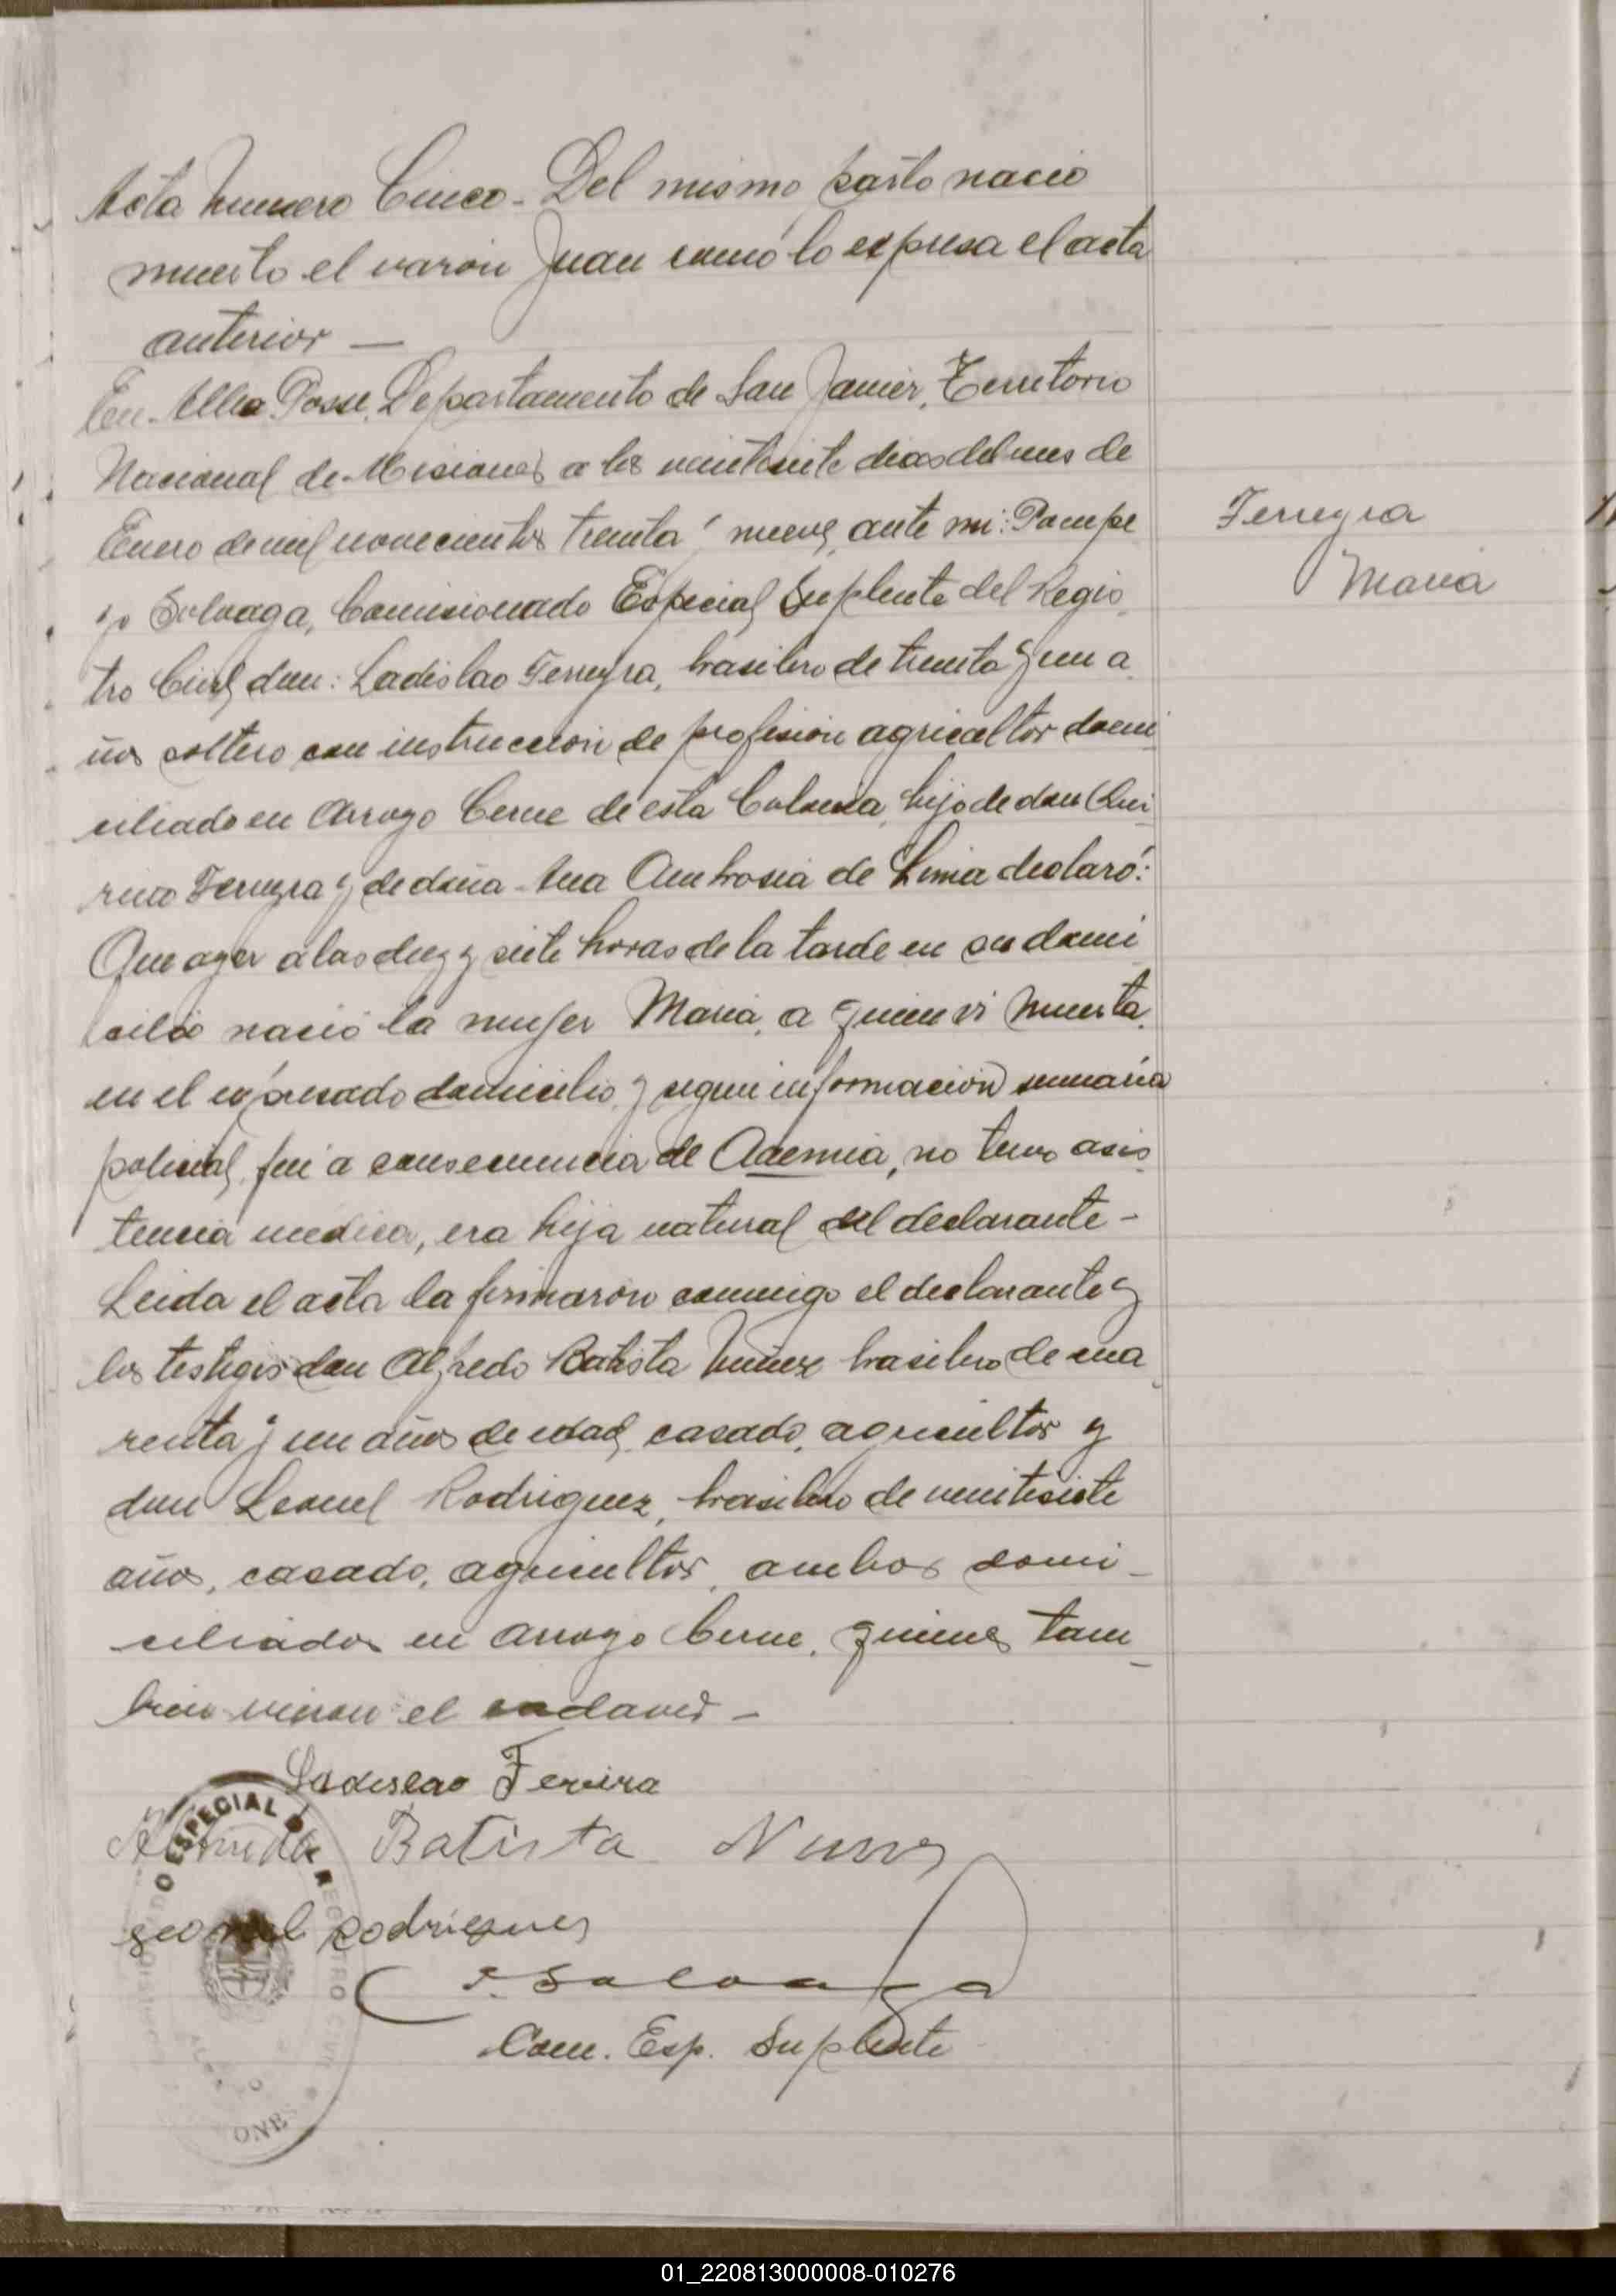 Acta Numero Cinco - Del mismo parto nacio
muerto el varon Juan como lo expresa el acta
anterior —
En Alba Posse, Departamento de San Javier, Territorio
Nacional de Misiones a los veintisiete dias del mes de
Enero de mil novecientos treinta y nueve, ante mi: Pompe
yo Solvaga, Comisionado Especial Suplente del Regis
tro Civil, don: Ladislao Ferreyra, brasilero de treinta y un a
ños soltero con instruccion de profesion agricultor domi
ciliado en Arroyo Cerne de esta Colonia, hijo de don Qui
rino Ferreyra y de doña Ana Ambrosia de Lima declaró:
Que ayer a las diez y siete horas de la tarde en su domi
cilio nació la mujer Maria, a quien vi muerta
en el expresado domicilio, y segun informacion sumaria
policial, fué a consecuencia de Anemia, no tuvo asis
tencia medica, era hija natural del declarante -
Leida el acta la firmaron conmigo el declarante y
los testigos don Alfredo Batista Nuñez brasilero de cua
renta y un años de edad, casado, agricultor y
don Leonel Rodriguez, brasilero de veintisiete
años, casado, agricultor, ambos domi-
ciliados en Arroyo Cerne, quienes tam
bien vieron el cadaver -
Ladislao Ferreira
Batista Nunes
Leonel Rodrigues
P. Solvaga
Com. Esp. Suplente
Ferreyra
Maria
O ESPECIAL DE REGISTRO CIVIL
01_220813000008-010276